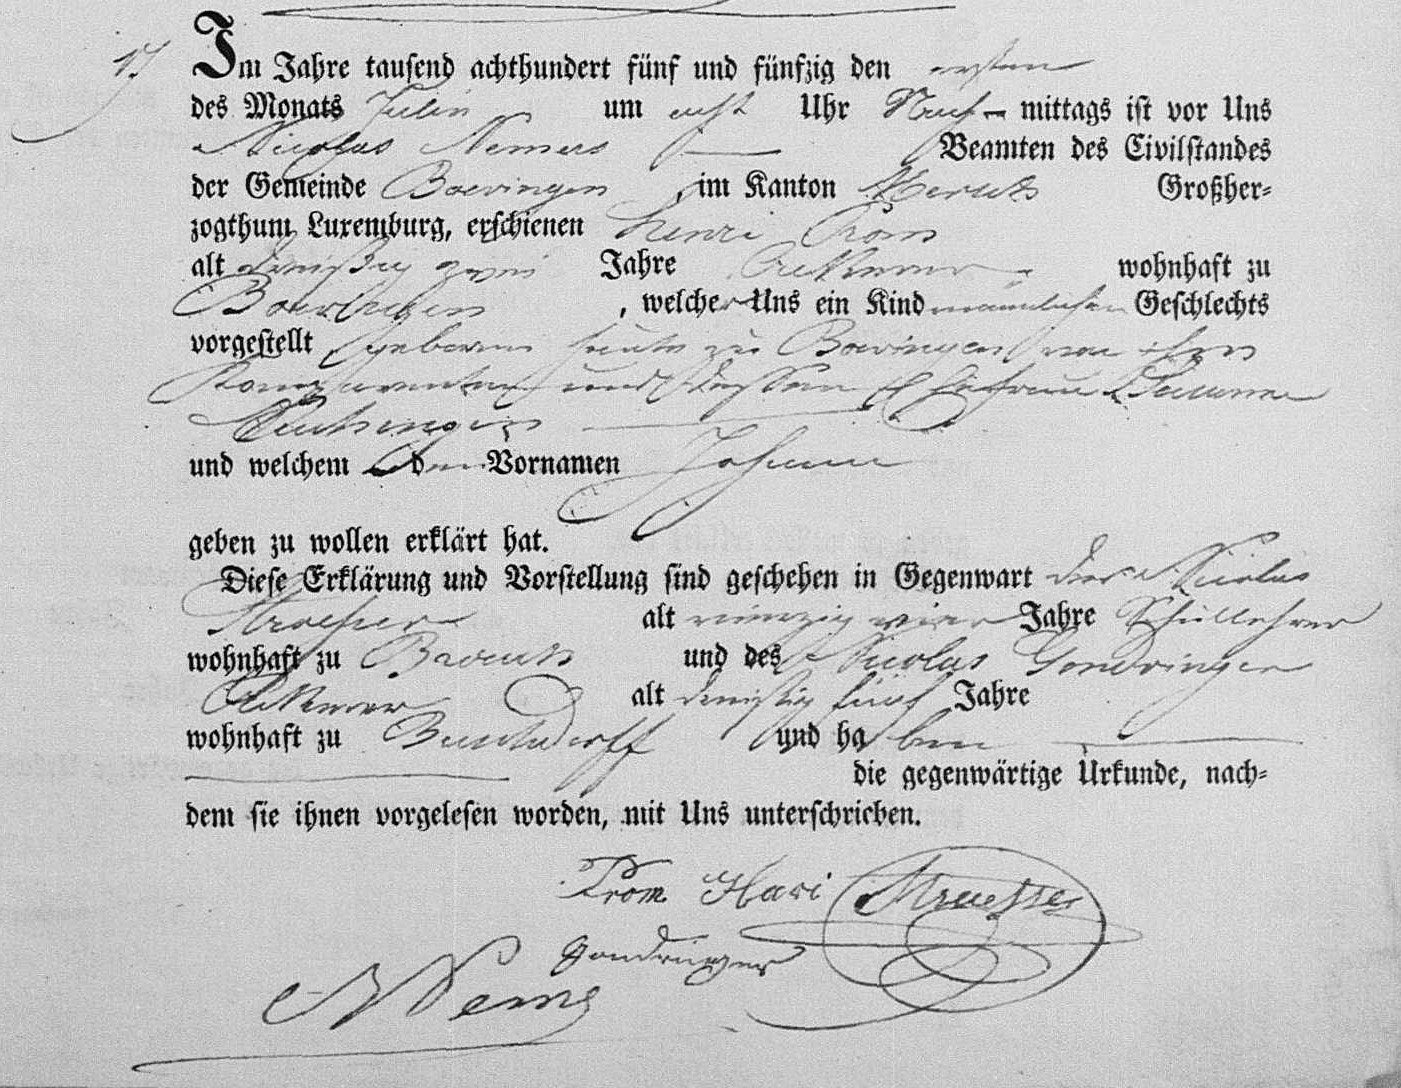 17.
Im Jahre tausend achthundert fünf und fünfzig den ersten
des Monats Julii um acht Uhr Nach- mittags ist vor Uns
Nicolas Nemers Beamten des Civilstandes
der Gemeinde Boevingen, im Kanton Mersch Großher-
zogthum Luxemburg, erschienen Henri Prom
alt dreißig zwei Jahre Ackerer wohnhaft zu
, welcher Uns ein Kind männlichen Geschlechts
vorgestellt geboren heute zu Boevingen von ihm
Komparenten und dessen Ehefrau Susanna
und welchem er den Vornamen Johann
geben zu wollen erklärt hat.
Diese Erklärung und Vorstellung sind geschehen in Gegenwart des Nicolas
Stroesser alt vierzig vier Jahre Schullehrer
wohnhaft zu und des Nicolas Gondringer
Ackerer alt dreißig fünf Jahre
wohnhaft zu Buschdorff und haben
die gegenwärtige Urkunde, nach-
dem sie ihnen vorgelesen worden, mit Uns unterschrieben.
Prom Hari Stroesser
Gondringer
N Nemers